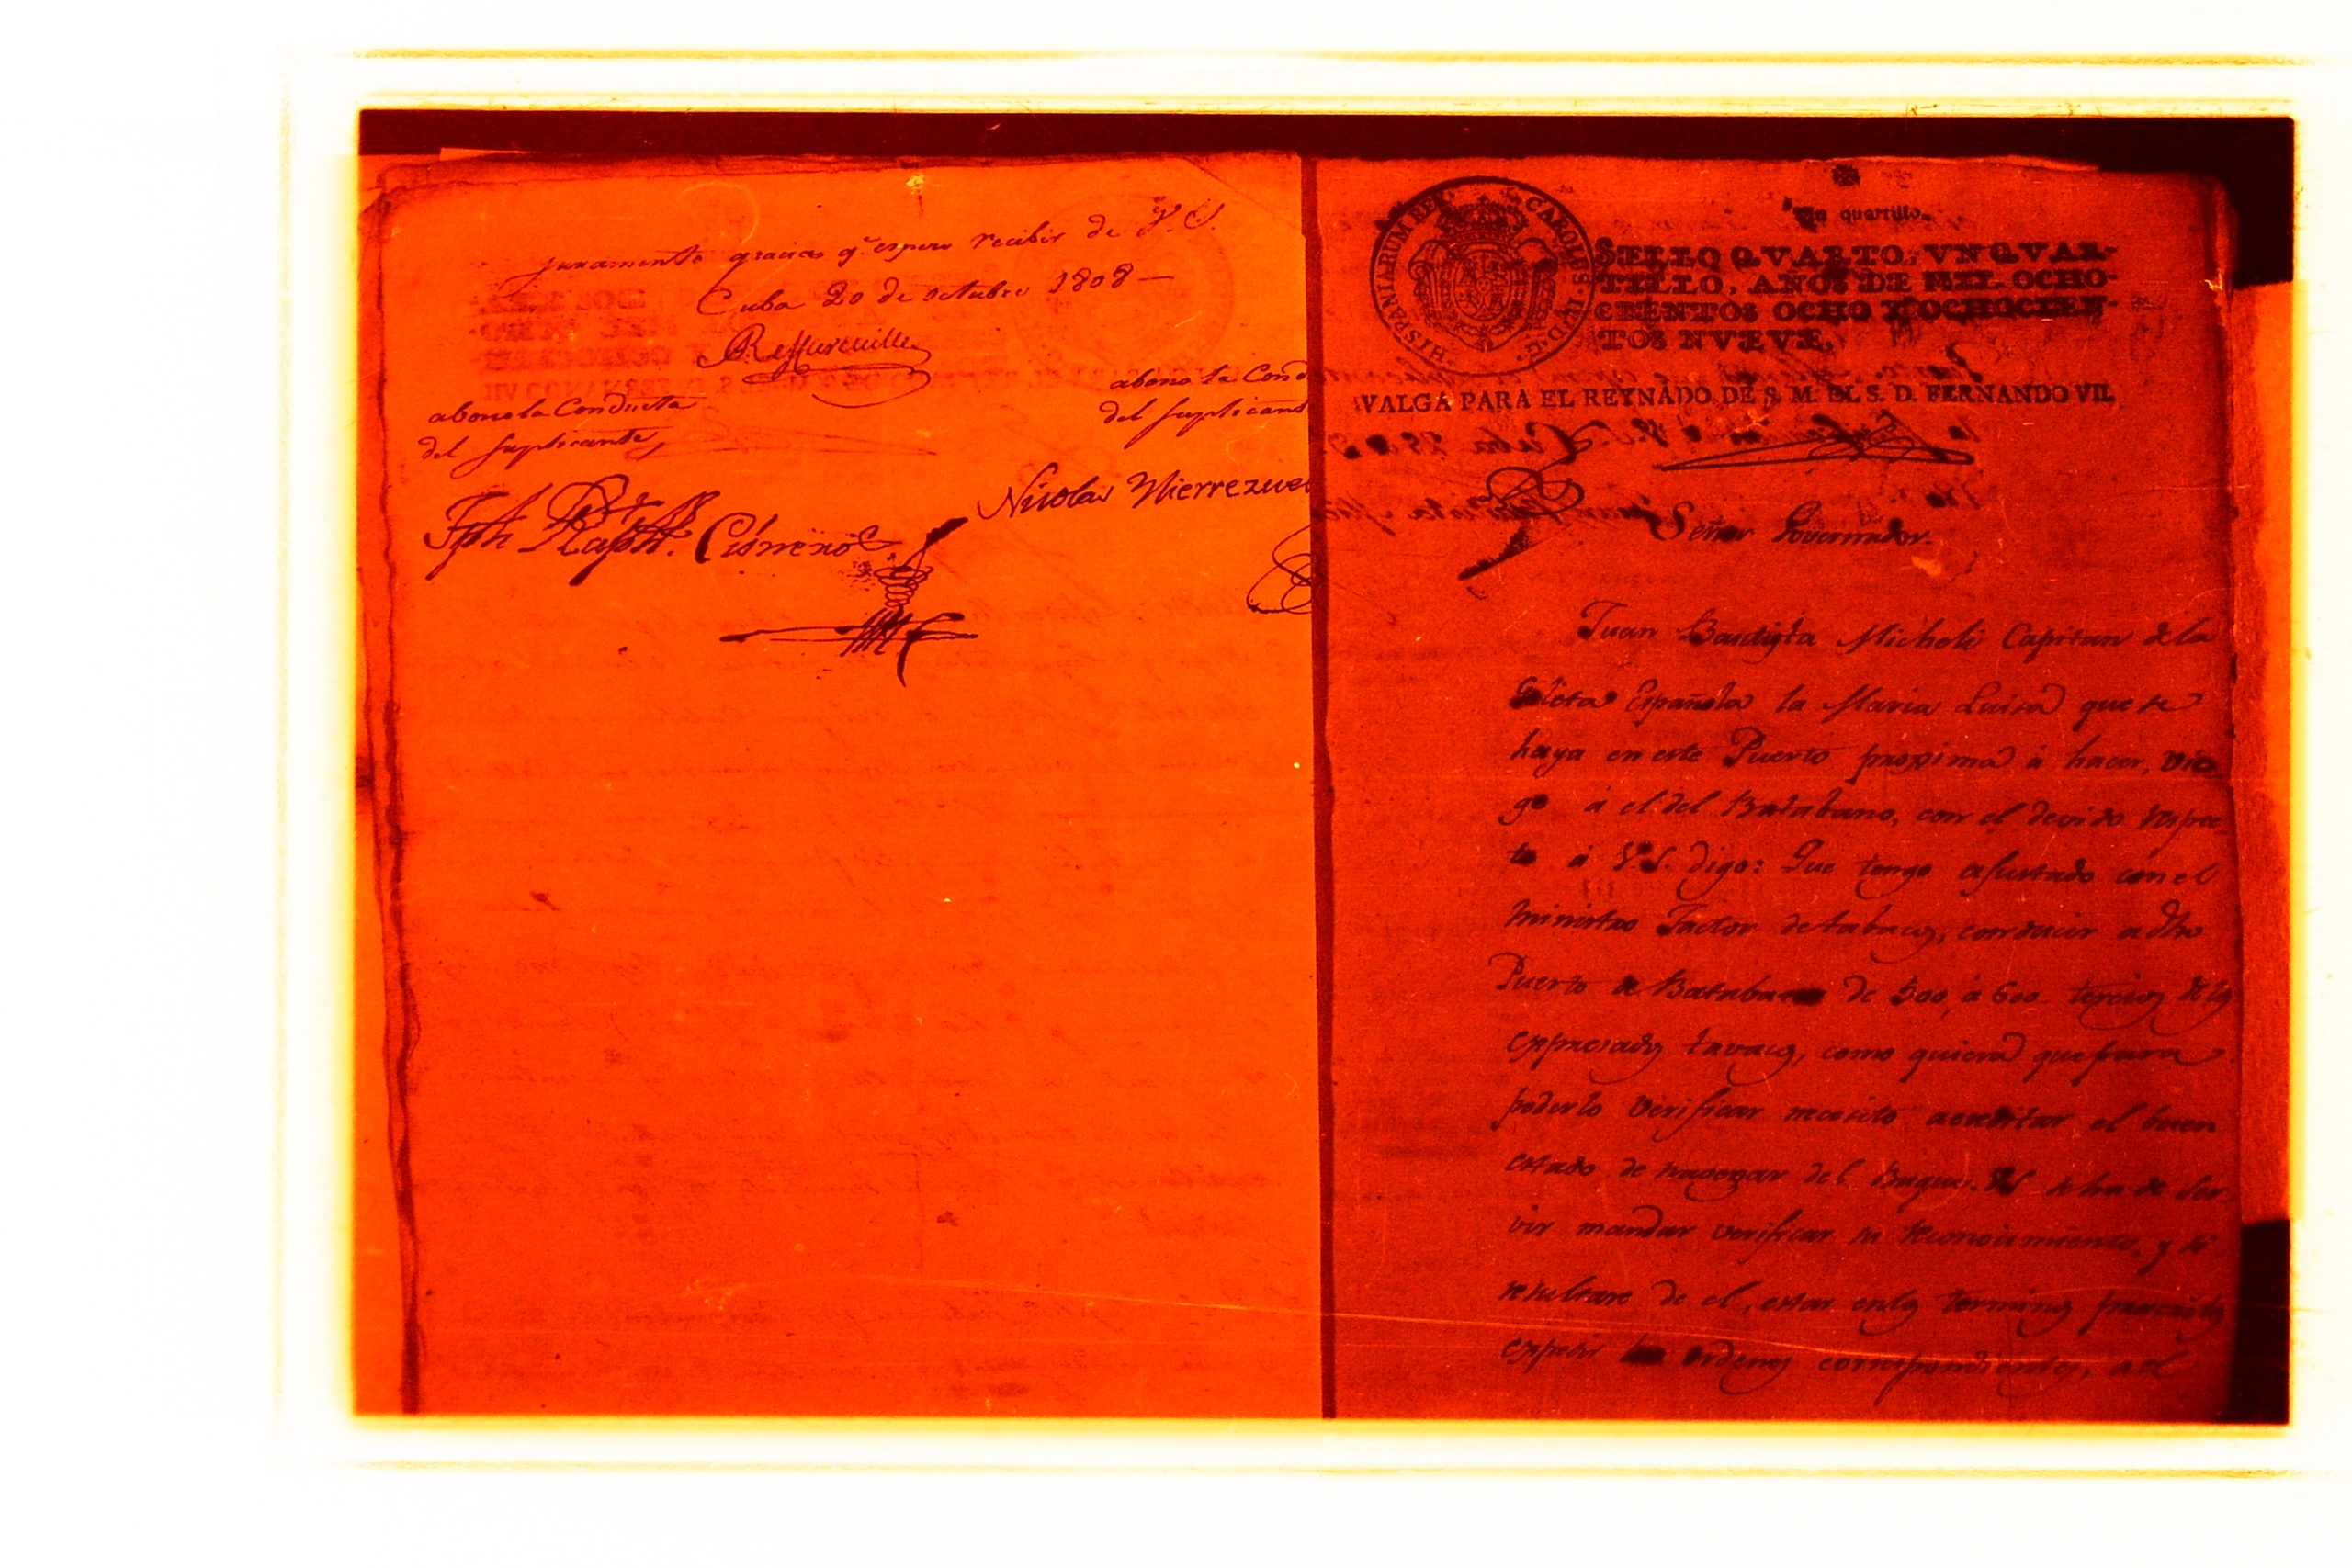 juramento gracias q.e espero recibir de V. S.
Cuba 20 de octubre 1808 —
abono la Conducta
del suplicante
abono la Cond
del suplicant
Nicolas
Jph Raph. Cisneros
HISPANIARUM REX CAROLUS IV D.G.
Un quartillo.
SELLO QVARTO, VN QVAR-
TILLO, AÑOS DE MIL OCHO-
CIENTOS OCHO Y OCHOCIEN-
TOS NVEVE.
VALGA PARA EL REYNADO DE S. M. EL S. D. FERNANDO VII.
Señor Governador.
Juan Baudista Micheli Capitan dela
Goleta Española la Maria Luisa que se
haya en este Puerto proxima á hacer, via
ge á el del Batabano, con el devido respec-
to á V.S. digo: Que tengo ajustado con el
Ministro Factor de tabacos, conducir adho
Puerto de Batabano de 500, á 600 tercios de los
expresados tavacos, como quiera que para
poderlo verificar necesito acreditar el buen
estado de navegar del Buque. VS se ha de ser-
vir mandar verificar su reconocimiento, y si
resultare de el, estar enlos terminos
expedir las ordenes correspondientes, a el